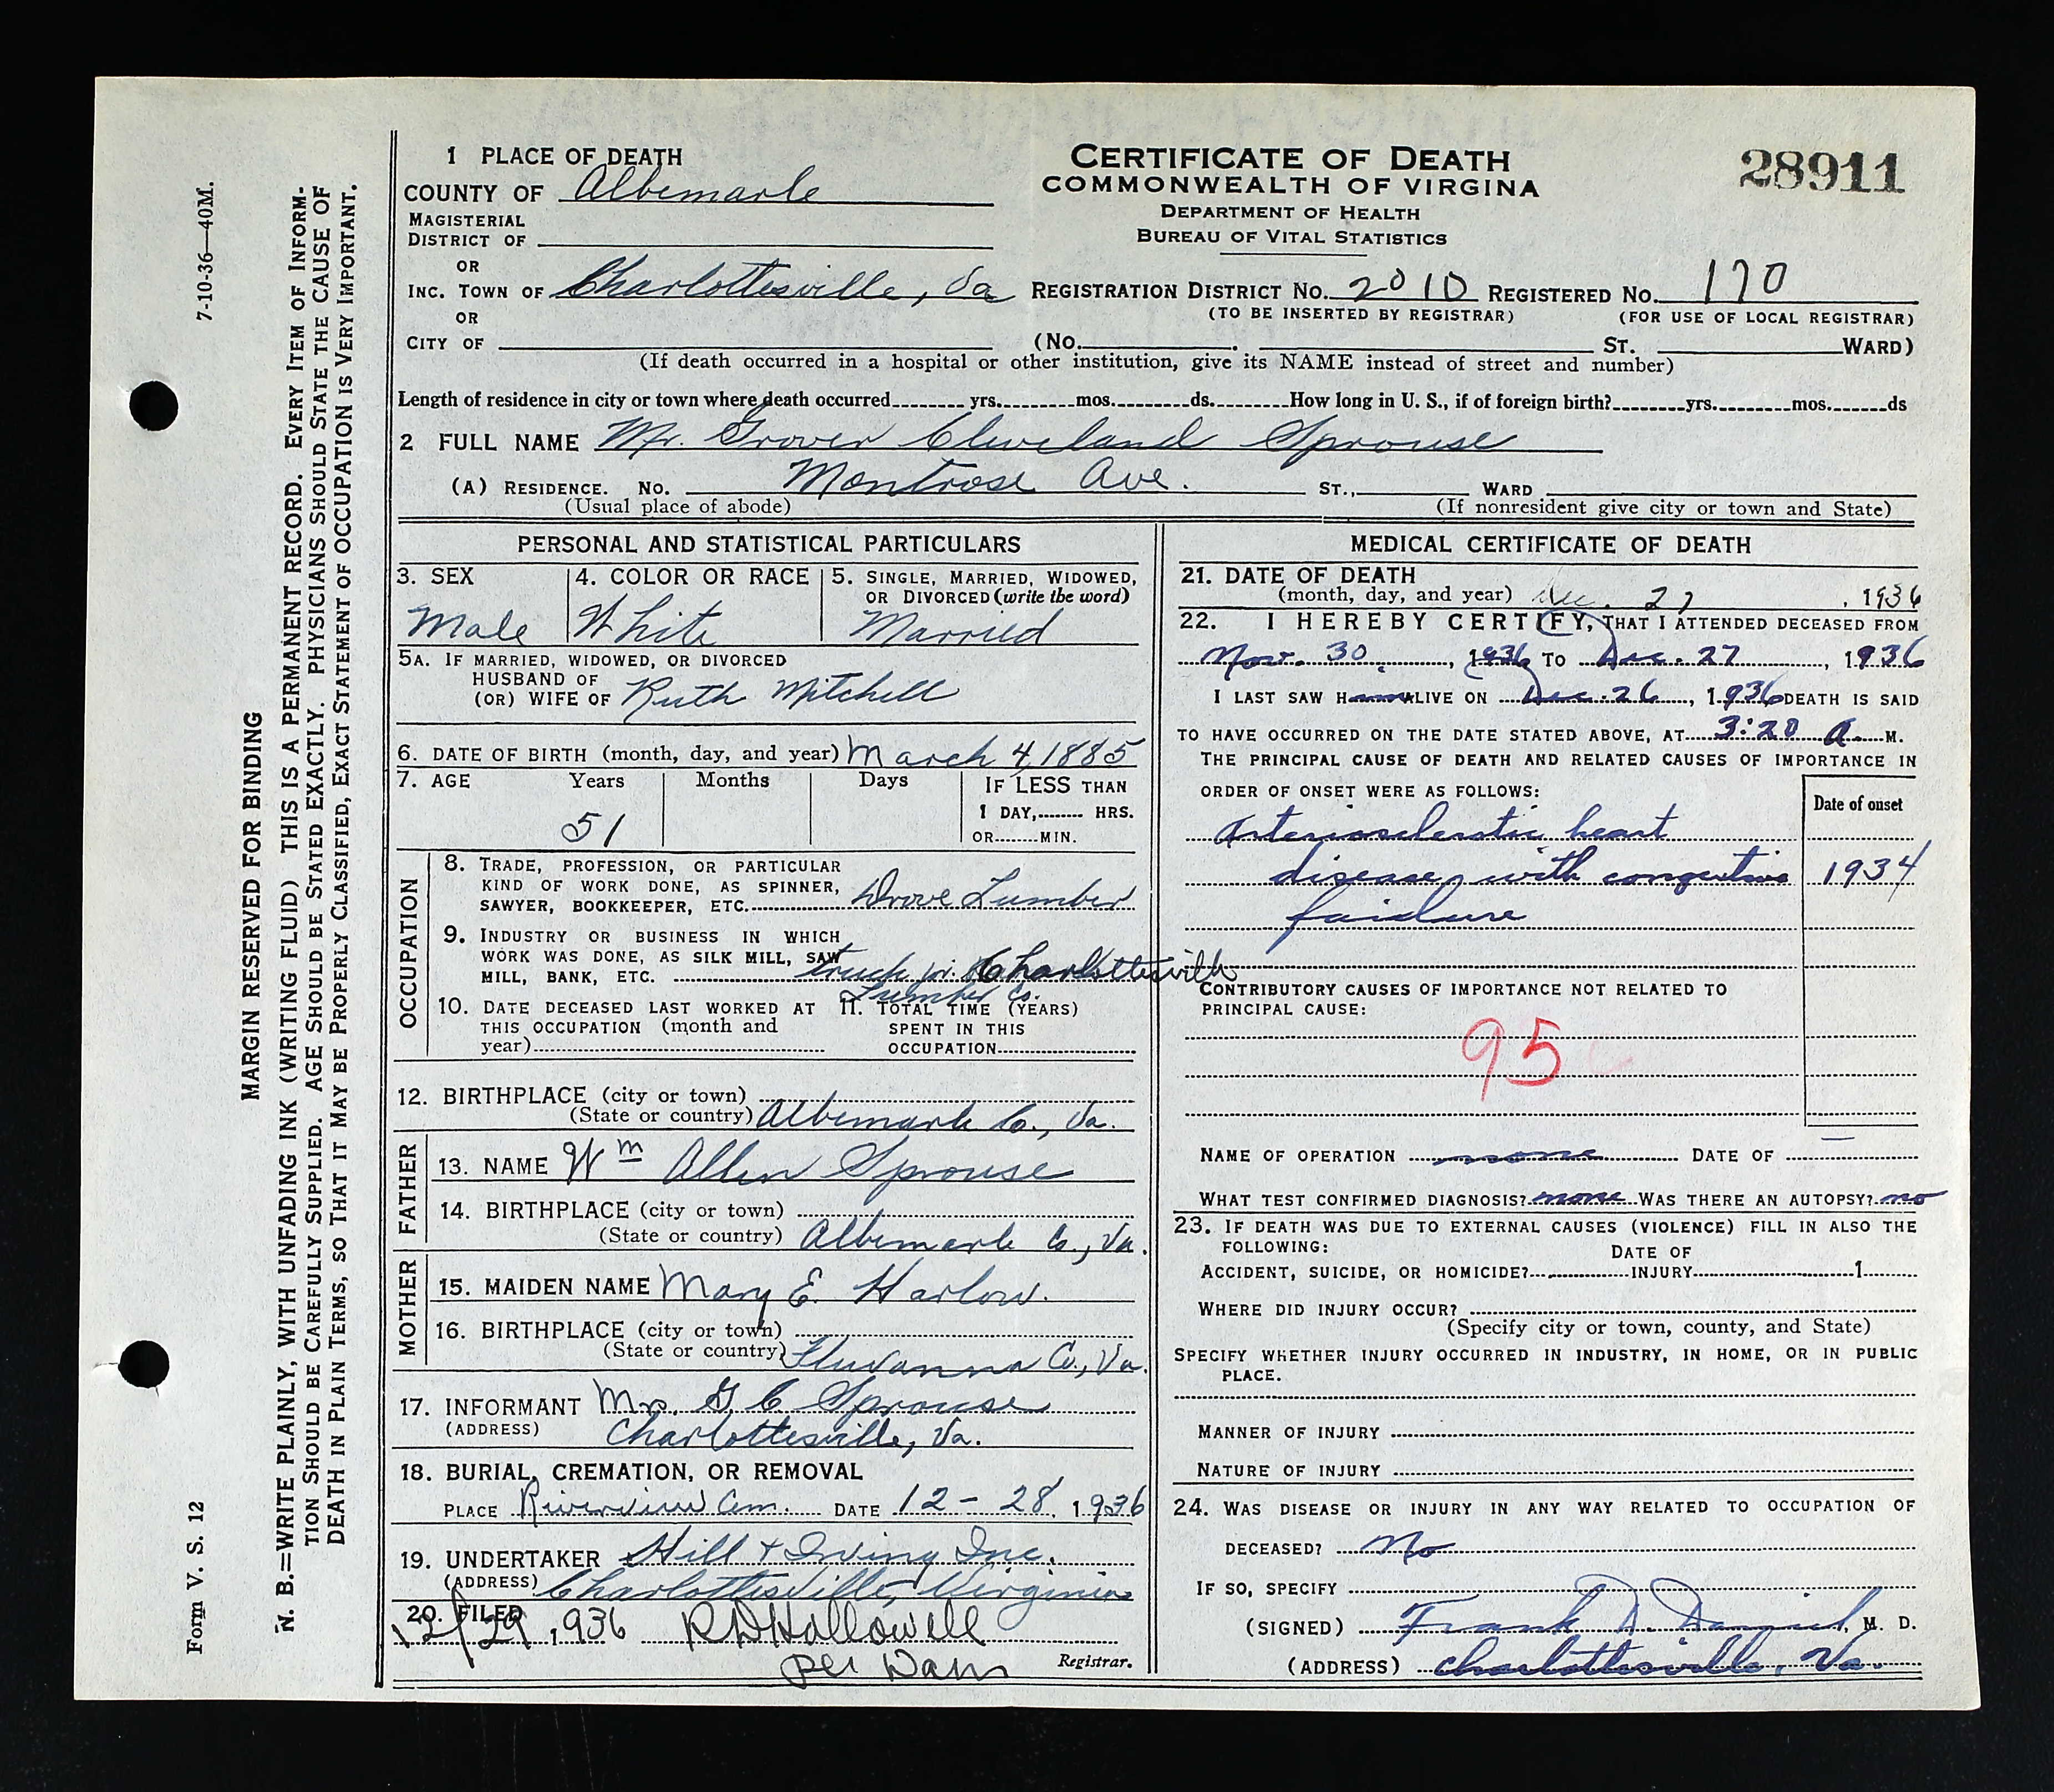 7-10-36—40M.
Form V. S. 12
MARGIN RESERVED FOR BINDING
N. B.=WRITE PLAINLY, WITH UNFADING INK (WRITING FLUID) THIS IS A PERMANENT RECORD. EVERY ITEM OF INFORM-
TION SHOULD BE CAREFULLY SUPPLIED. AGE SHOULD BE STATED EXACTLY. PHYSICIANS SHOULD STATE THE CAUSE OF
DEATH IN PLAIN TERMS, SO THAT IT MAY BE PROPERLY CLASSIFIED, EXACT STATEMENT OF OCCUPATION IS VERY IMPORTANT.
CERTIFICATE OF DEATH
COMMONWEALTH OF VIRGINA
DEPARTMENT OF HEALTH
BUREAU OF VITAL STATISTICS
28911
1 PLACE OF DEATH
COUNTY OF Albemarle
MAGISTERIAL
DISTRICT OF
OR
INC. TOWN OF Charlottesville, Va REGISTRATION DISTRICT NO. 2010 REGISTERED NO. 170
OR (TO BE INSERTED BY REGISTRAR) (FOR USE OF LOCAL REGISTRAR)
CITY OF (NO. . ST. WARD)
(If death occurred in a hospital or other institution, give its NAME instead of street and number)
Length of residence in city or town where death occurred yrs. mos. ds. How long in U. S., if of foreign birth? yrs. mos. ds
2 FULL NAME Mr. Grover Cleveland Sprouse
(A) RESIDENCE. NO. Montrose Ave. ST., WARD
(Usual place of abode) (If nonresident give city or town and State)
PERSONAL AND STATISTICAL PARTICULARS
3. SEX 4. COLOR OR RACE 5. SINGLE, MARRIED, WIDOWED,
OR DIVORCED (write the word)
Male White Married
5A. IF MARRIED, WIDOWED, OR DIVORCED
HUSBAND OF
(OR) WIFE OF Ruth Mitchell
6. DATE OF BIRTH (month, day, and year) March 4, 1885
7. AGE Years Months Days IF LESS THAN
1 DAY, HRS.
51 OR MIN.
OCCUPATION
8. TRADE, PROFESSION, OR PARTICULAR
KIND OF WORK DONE, AS SPINNER,
SAWYER, BOOKKEEPER, ETC. Drove Lumber
9. INDUSTRY OR BUSINESS IN WHICH
WORK WAS DONE, AS SILK MILL, SAW
MILL, BANK, ETC. truck Charlottesville
Lumber Co.
10. DATE DECEASED LAST WORKED AT 11. TOTAL TIME (YEARS)
THIS OCCUPATION (month and SPENT IN THIS
year) OCCUPATION
12. BIRTHPLACE (city or town)
(State or country) Albemarle Co., Va.
FATHER
13. NAME Wm Allen Sprouse
14. BIRTHPLACE (city or town)
(State or country) Albemarle Co., Va.
MOTHER
15. MAIDEN NAME Mary E. Harlow.
16. BIRTHPLACE (city or town)
(State or country) Fluvanna Co., Va.
17. INFORMANT Mrs. G. C Sprouse
(ADDRESS) Charlottesville, Va.
18. BURIAL, CREMATION, OR REMOVAL
PLACE Riverview Cem. DATE 12-28, 1936
19. UNDERTAKER Hill & Irving Inc.
(ADDRESS) Charlottesville, Virginia
20. FILED
12/29, 1936 R D Hallowell
per Registrar.
MEDICAL CERTIFICATE OF DEATH
21. DATE OF DEATH
(month, day, and year) Dec. 27, 1936
22. I HEREBY CERTIFY, THAT I ATTENDED DECEASED FROM
Nov. 30, 1936 TO Dec. 27, 1936
I LAST SAW Him ALIVE ON Dec. 26, 1936 DEATH IS SAID
TO HAVE OCCURRED ON THE DATE STATED ABOVE, AT 3:20 A. M.
THE PRINCIPAL CAUSE OF DEATH AND RELATED CAUSES OF IMPORTANCE IN
ORDER OF ONSET WERE AS FOLLOWS: Date of onset
Arteriosclerotic heart
disease, with congestive 1934
failure
CONTRIBUTORY CAUSES OF IMPORTANCE NOT RELATED TO
PRINCIPAL CAUSE:
95
NAME OF OPERATION none DATE OF —
WHAT TEST CONFIRMED DIAGNOSIS? none WAS THERE AN AUTOPSY? no
23. IF DEATH WAS DUE TO EXTERNAL CAUSES (VIOLENCE) FILL IN ALSO THE
FOLLOWING: DATE OF
ACCIDENT, SUICIDE, OR HOMICIDE? INJURY 1
WHERE DID INJURY OCCUR?
(Specify city or town, county, and State)
SPECIFY WHETHER INJURY OCCURRED IN INDUSTRY, IN HOME, OR IN PUBLIC
PLACE.
MANNER OF INJURY
NATURE OF INJURY
24. WAS DISEASE OR INJURY IN ANY WAY RELATED TO OCCUPATION OF
DECEASED? No
IF SO, SPECIFY
(SIGNED) Frank D. Daniel, M. D.
(ADDRESS) Charlottesville, Va.